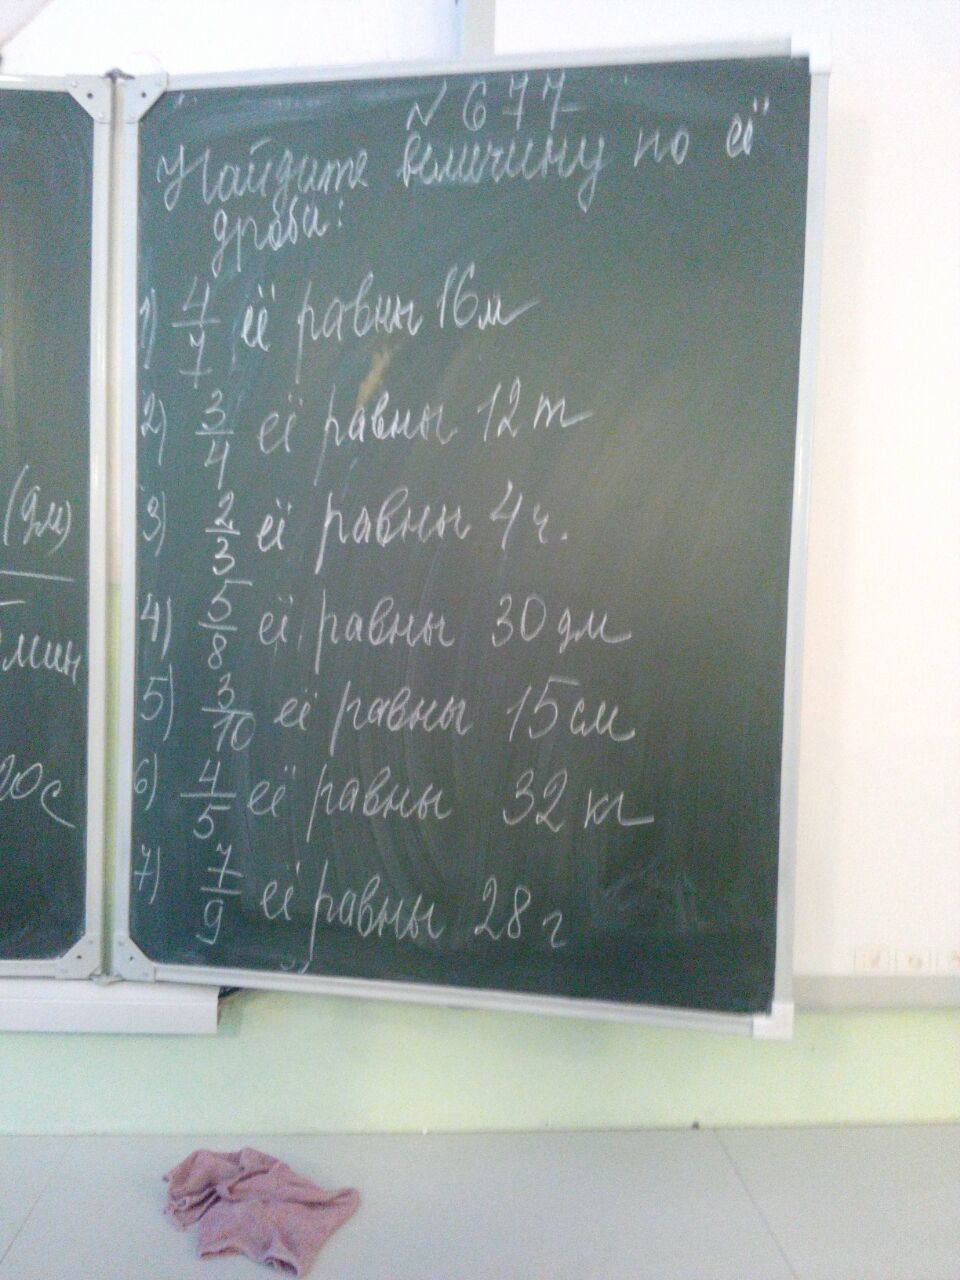 № 677
Найдите величину по её
дроби:
1) 4/7 её равны 16 м
2) 3/4 её равны 12 т
3) 2/3 её равны 4 ч.
4) 5/8 её равны 30 дм
5) 3/10 её равны 15 см
6) 4/5 её равны 32 кг
7) 7/9 её равны 28 г
(дм)
мин
20 с